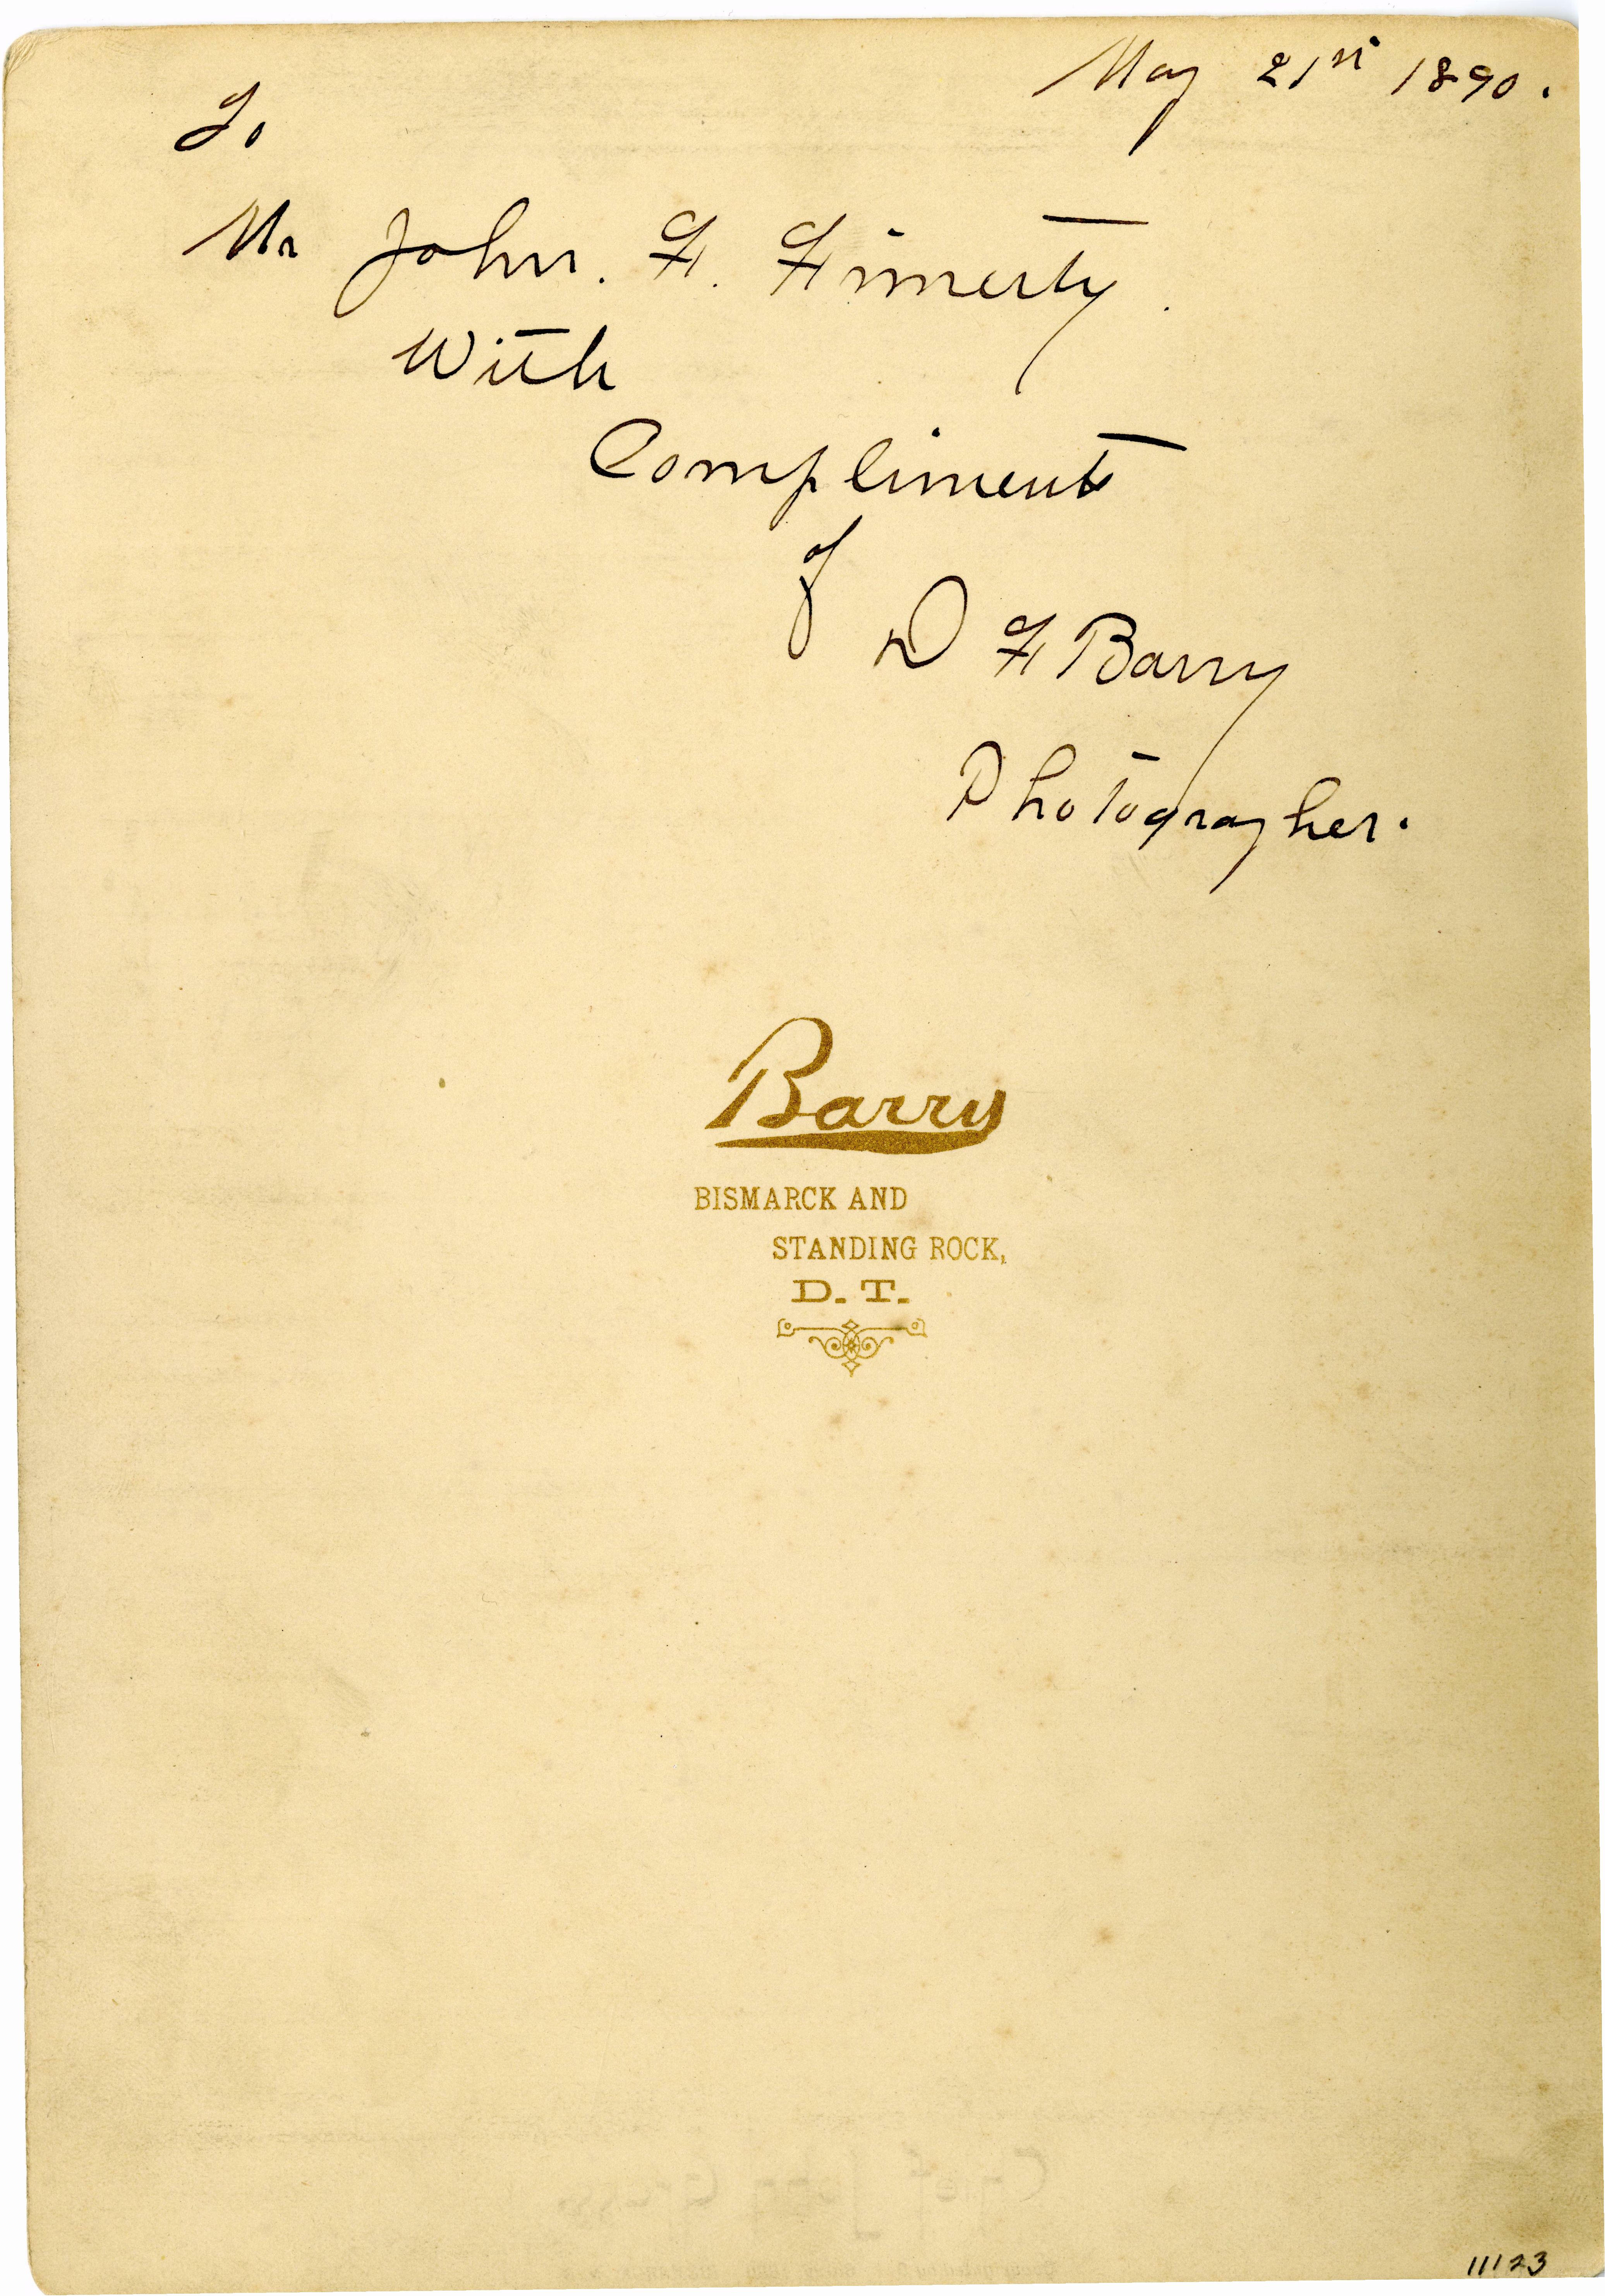 May 21st 1890.
To
Mr John. F. Finerty.
With
Compliments
of
D F Barry
Photographer.
Barry
BISMARCK AND
STANDING ROCK,
D. T.
11123